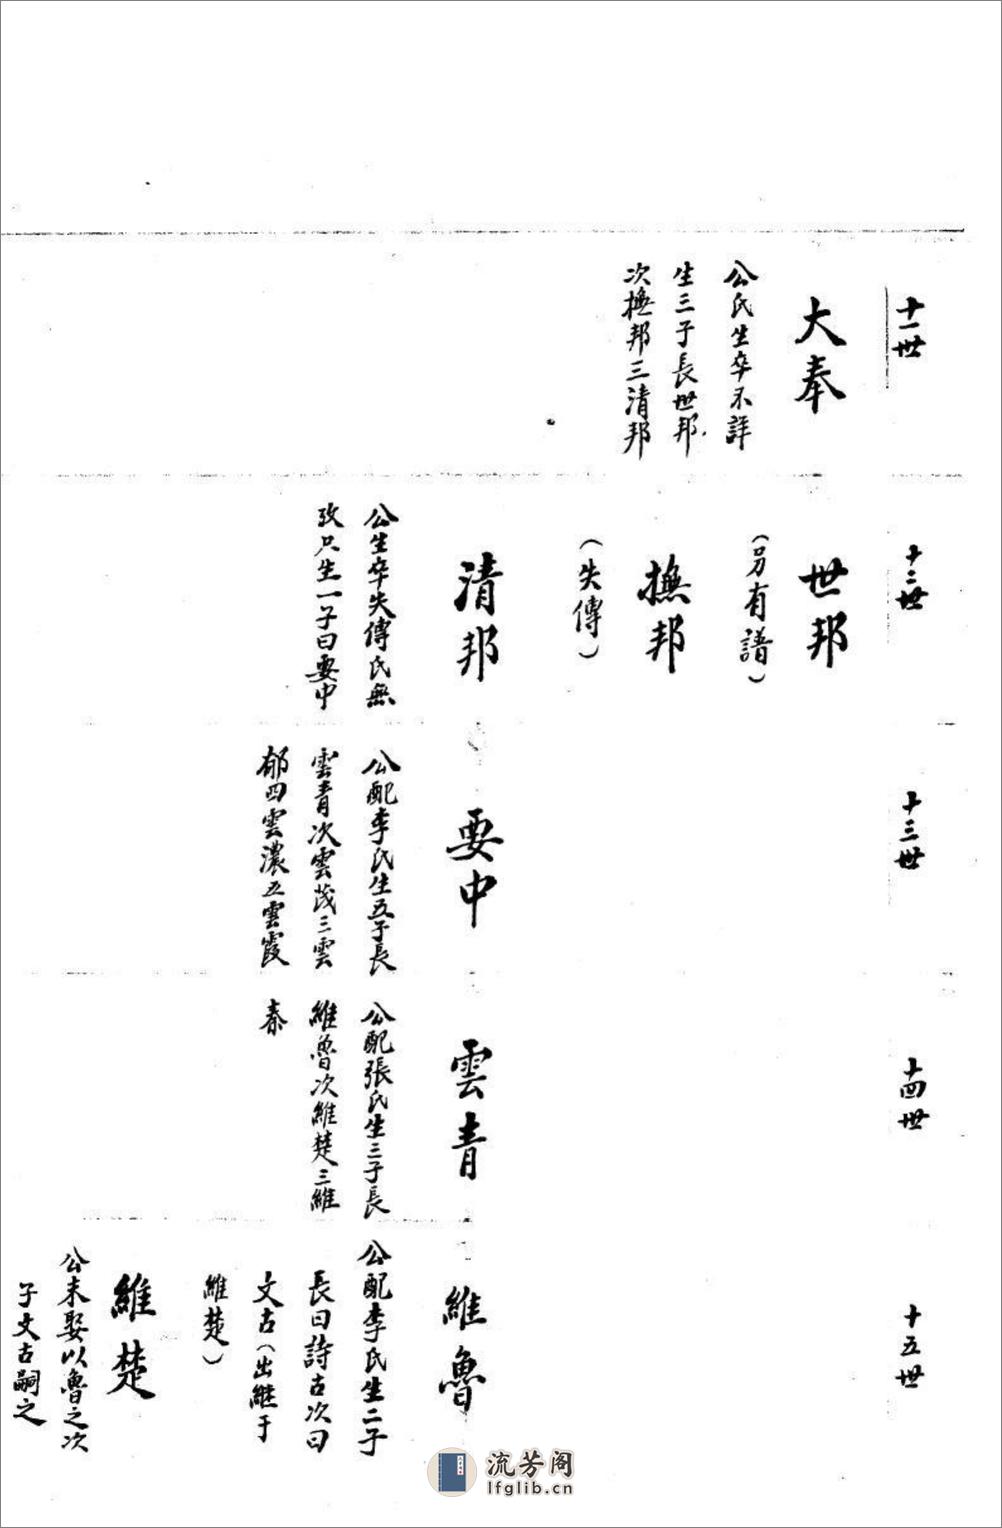 十一世
大奉
公氏生卒不詳
生三子長世邦
次撫邦三清邦
十二世
世邦
（另有譜）
撫邦
（失傳）
清邦
公生卒失傳氏無
攷只生一子曰要中
十三世
要中
公配李氏生五子長
雲青次雲茂三雲
郁四雲濃五雲霞
十四世
雲青
公配張氏生三子長
維魯次維楚三維
秦
十五世
維魯
公配李氏生二子
長曰詩古次曰
文古（出継于
維楚）
維楚
公未娶以魯之次
子文古嗣之
流芳阁
lfglib.cn